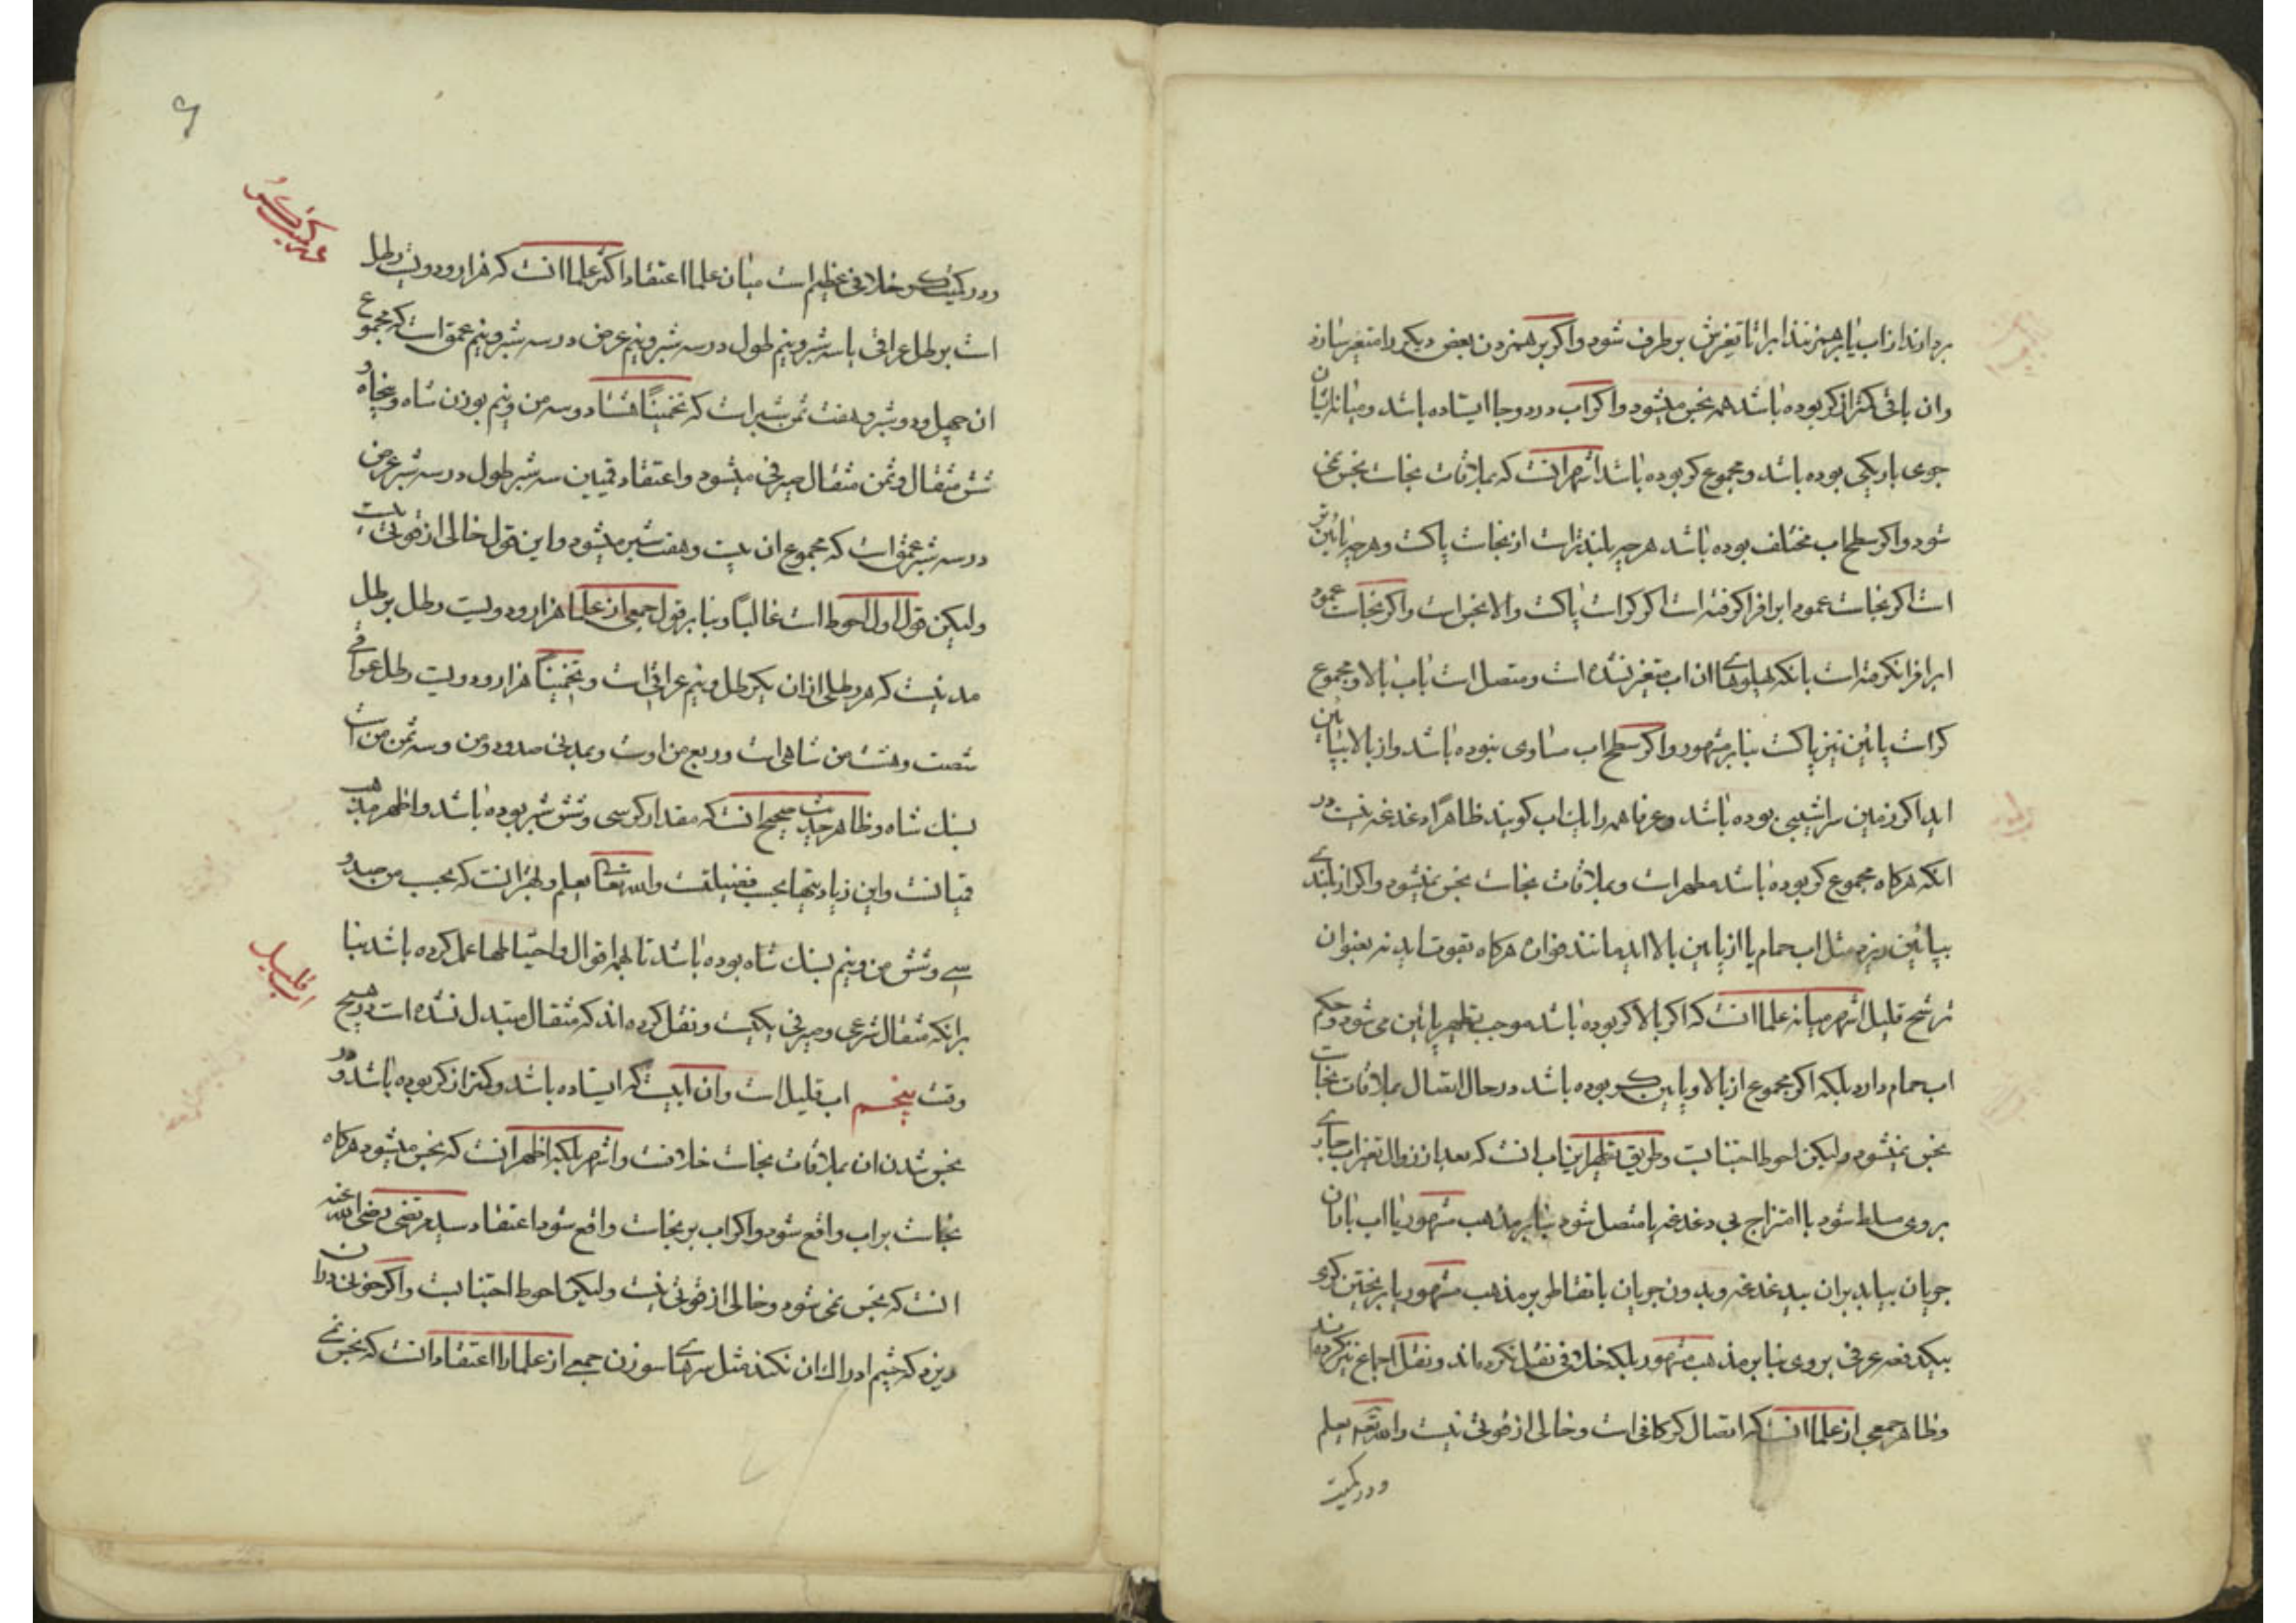 بردارند از اب یا برهم زنند ابرا تا تغیرش برطرف شود و اکر برهم زدن بعض دیکر را متغیر سازد
وان باقی کمتر از کر بوده باشد همه نجس میشود و اکر اب در دو جا ایستاده باشد و میانه ایشان
جوی باریکی بوده باشد و مجموع کر بوده باشد اشهر انست که بملاقات نجاست نجس نمی
شود و اکر سطح اب مختلف بوده باشد هر چه بلندتر است از نجاست پاکست و هر چه پائین تر
است اکر نجاست عمود ابرا فرا کرفته است اکر کر است پاکست و الا نجس است و اکر نجاست عمود
ابرا فرا نکرفته است بانکه پهلوهای ان اب متغیر نشده است و متصل است باب بالا و مجموع
کر است پائین نیز پاکست بنا بر مشهور و اکر سطح اب مساوی نبوده باشد و از بالا بپائین
اید اکر زمین سراشیبی بوده باشد و عرفا همه را یک اب کویند ظاهرا دغدغه نیست در
انکه هرکاه مجموع کر بوده باشد مطهر است و بملاقات نجاست نجس نمیشود و اکر از بلندی
بپائین ریزد مثل اب حمام یا از پایین بالا اید مانند فواره هرکاه بقوت اید نه بعنوان
ترشح قلیل اشهر میانه علما انست که اکر بالا کر بوده باشد موجب تطهیر پائین می شود و حکم
اب حمام دارد بلکه اکر مجموع از بالا و پایین کر بوده باشد در حال اتصال بملاقات نجاست
نجس نمیشود ولیکن احوط اجتنابست و طریق تطهیر این اب انست که بعد از زوال تغیر اب جاری
بر وی مسلط شود با امتزاج بی دغدغه یا متصل شود بنا بر مذهب مشهور یا اب باران
جریان بیابد بران بیدغدغه و بدون جریان با تقاطر بر مذهب مشهور یا بریختن کری
بیکدفعه عرفی بر وی بنا بر مذهب مشهور بلکه خلافی نقل نکرده اند و نقل اجماع نیز کرده اند
و ظاهر جمعی از علما انست که اتصال کر کافی است و خالی از قوتی نیست والله تعه یعلم
و در کمیت
و در کمیت کر خلافی عظیم است میان علما اعتقاد اکثر علما انست که هزار و دویست رطل
است برطل عراقی یا سه شبر و نیم طول در سه شبر و نیم عرض در سه شبر و نیم عمق است که مجموع
ان چهل و دو شبر و هفت ثمن شبر است که تخمینًا هشتاد و سه من و نیم بوزن شاه و پنجاه و
شش مثقال و ثمن مثقال صیرفی میشود و اعتقاد قمیین سه شبر طول در سه شبر عرض
در سه شبر عمق است که مجموع ان بیست و هفت شبر میشود و این قول خالی از قوتی نیست
ولیکن قول اول احوط است غالبًا و بنا بر قول جمعی از علما هزار و دویست رطل برطل
مدنیست که هر رطلی از ان یک رطل و نیم عراقی است و تخمینًا هزار و دویست رطل عراقی
شصت و هشت من شاهی است و ربع من اوست و بمدنی صد و دو من و سه ثمن من است
بسنک شاه و ظاهر حدیث صحیح انست که مقدار کر سی و شش شبر بوده باشد و اظهر مذهب
قمیانست و این زیادتیها بحسب فضیلتست والله تعالی یعلم و بهتر انست که بحسب من صد و
سی و شش من و نیم بسنک شاه بوده باشد تا بهمه اقوال و احتیاطها عمل کرده باشد بنا
برانکه مثقال شرعی و صیرفی یکیست و نقل کرده اند که مثقال متبدل نشده است در هیچ
وقت پنجم اب قلیل است وان ابیست که ایستاده باشد و کمتر از کر بوده باشد و در
نجس شدن ان بملاقات نجاست خلافست و اشهر بلکه اظهر انست که نجس میشود هرکاه
نجاست بر اب واقع شود و اکر اب بر نجاست واقع شود اعتقاد سید مرتضی رضی الله عنه
انست که نجس نمی شود و خالی از قوتی نیست ولیکن احوط اجتنابست و اکر خونی دران
ریزد که چشم ادراک ان نکند مثل سرهای سوزن جمعی از علما را اعتقاد انست که نجس نمی
اب قلیل